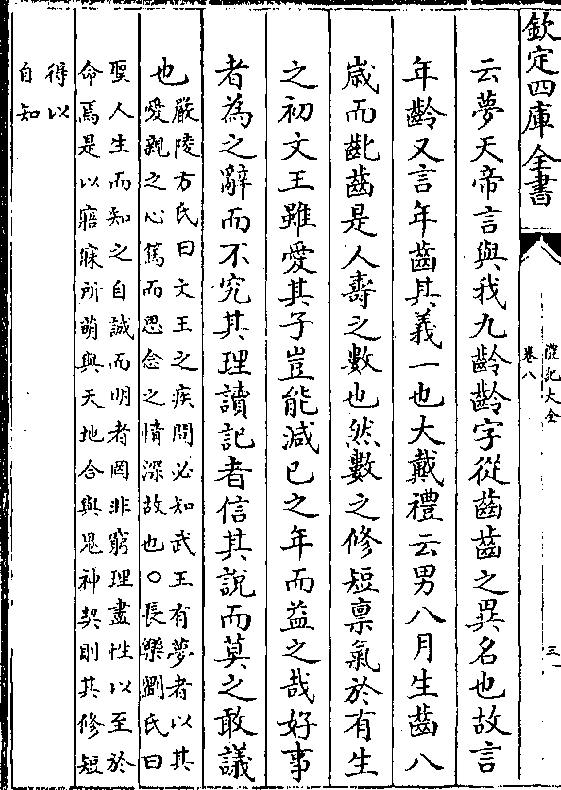 欽定四庫全書
禮記大全
卷八
三
云夢天帝言與我九齡齡字從齒齒之異名也故言
年齡又言年齒其義一也大戴禮云男八月生齒八
歲而齔齒是人壽之數也然數之修短禀氣於有生
之初文王雖愛其子豈能減已之年而益之哉好事
者為之辭而不究其理讀記者信其說而莫之敢議
也
嚴陵方氏曰文王之疾問必知武王有夢者以其
愛親之心篤而思念之情深故也○長樂劉氏曰
聖人生而知之自誠而明者罔非窮理盡性以至於
命焉是以寤寐所萌與天地合與鬼神契則其修短
得以
自知